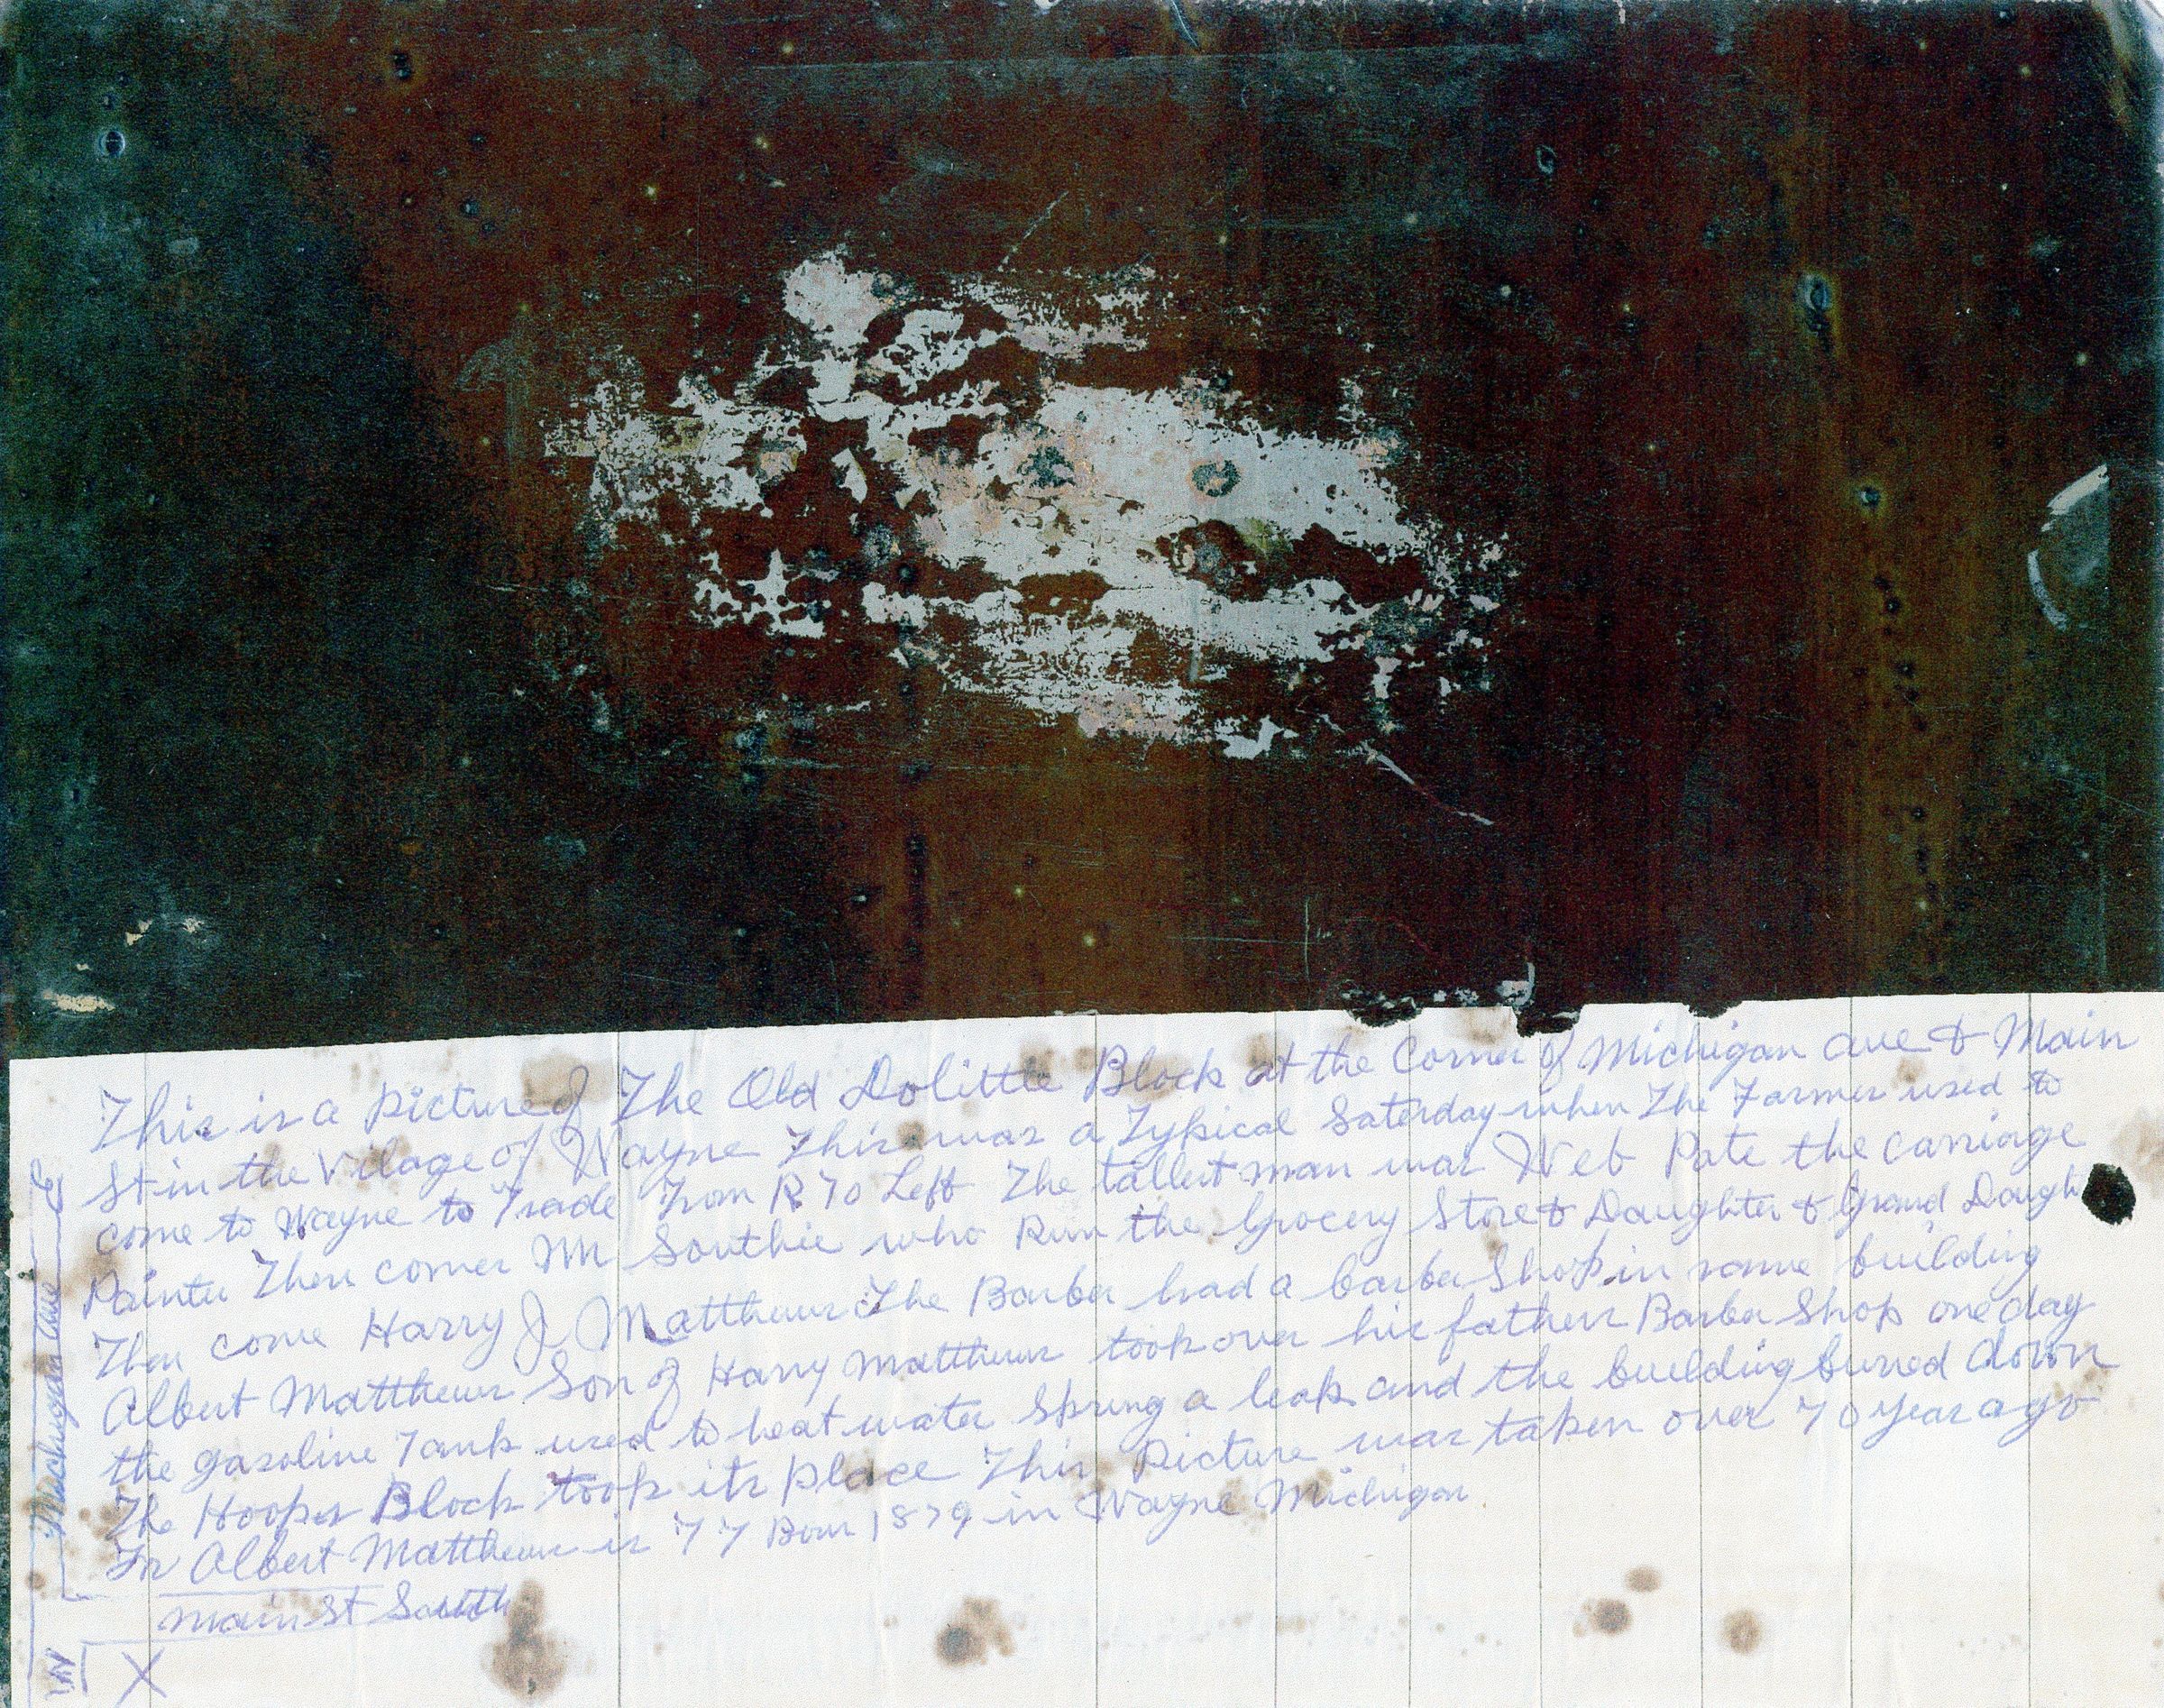 This is a picture of The Old Dolittle Block at the Corner of Michigan ave & Main
St in the Vilage of Wayne This was a Typical Saterday when The Farmer used to
come to Wayne to Trade From R To Left The tallest man was Web Pate the carriage
Painter Then comes Mr Southie who Run the Grocery Store & Daughter & Grand Daugh
Then come Harry J Matthews The Barber had a barber Shop in same building
Albert Matthews Son of Harry Matthews took over his fathers Barber Shop one day
the gasoline Tank used to heat water Sprung a leak and the building burned down
The Hooper Block took its place This Picture was taken over 70 year ago
Albert Matthews is 77 Born 1879 in Wayne Michigan
Main St South
X
W
Michigan Ave
E